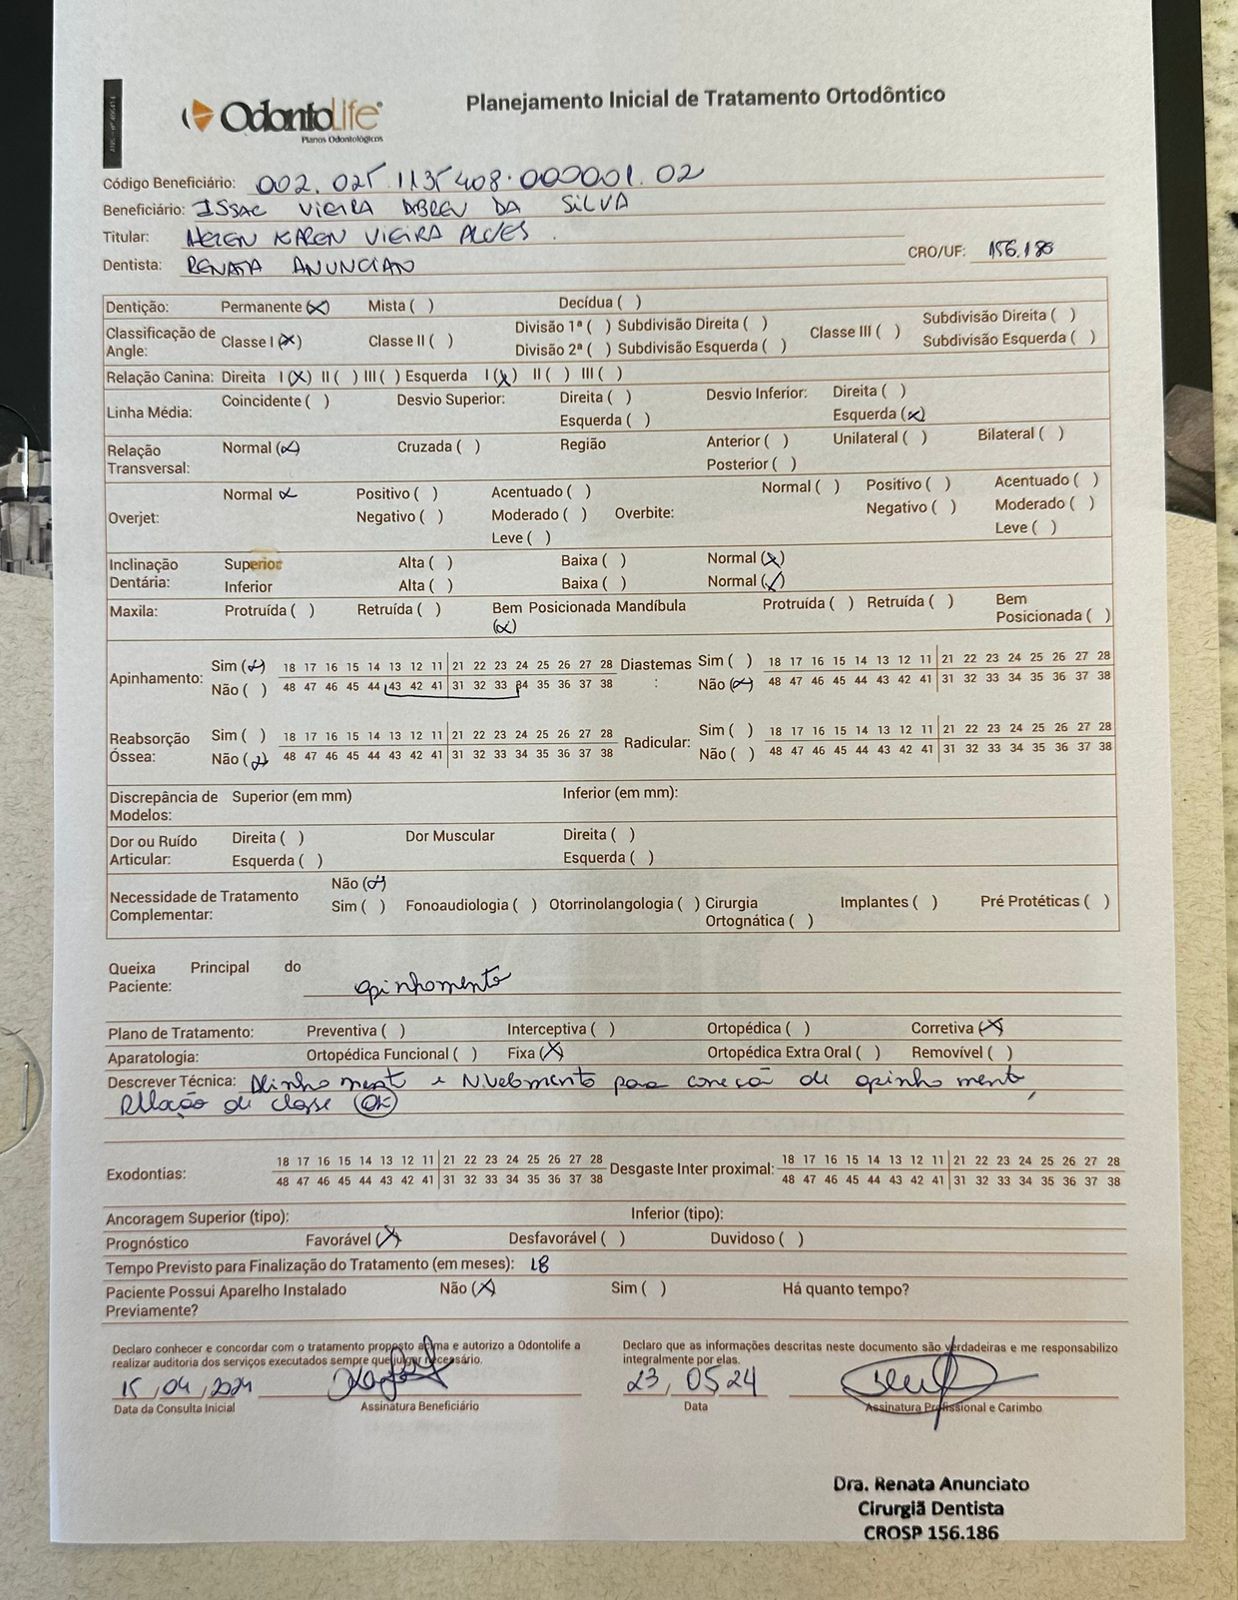 OdontoLife
Planos Odontológicos
Planejamento Inicial de Tratamento Ortodôntico
Código Beneficiário: 002.025.1135408.000001.02
Beneficiário: ISSAC VIEIRA ABREU DA SILVA
Titular: HELEN KAREN VIEIRA ALVES.
Dentista: RENATA ANUNCIAÑO CRO/UF: 156.186
Dentição: Permanente (x) Mista ( ) Decídua ( )
Classificação de Angle: Classe I (x) Classe II ( ) Divisão 1ª ( ) Subdivisão Direita ( ) Classe III ( ) Subdivisão Direita ( )
Divisão 2ª ( ) Subdivisão Esquerda ( ) Subdivisão Esquerda ( )
Relação Canina: Direita I (x) II ( ) III ( ) Esquerda I (x) II ( ) III ( )
Linha Média: Coincidente ( ) Desvio Superior: Direita ( ) Desvio Inferior: Direita ( )
Esquerda ( ) Esquerda (x)
Relação Transversal: Normal (x) Cruzada ( ) Região Anterior ( ) Unilateral ( ) Bilateral ( )
Posterior ( )
Overjet: Normal x Positivo ( ) Acentuado ( ) Overbite: Normal ( ) Positivo ( ) Acentuado ( )
Negativo ( ) Moderado ( ) Negativo ( ) Moderado ( )
Leve ( ) Leve ( )
Inclinação Dentária: Superior Alta ( ) Baixa ( ) Normal (x)
Inferior Alta ( ) Baixa ( ) Normal (x)
Maxila: Protruída ( ) Retruída ( ) Bem Posicionada (x) Mandíbula Protruída ( ) Retruída ( ) Bem Posicionada ( )
Apinhamento: Sim (x) 18 17 16 15 14 13 12 11 21 22 23 24 25 26 27 28 Diastemas: Sim ( ) 18 17 16 15 14 13 12 11 21 22 23 24 25 26 27 28
Não ( ) 48 47 46 45 44 43 42 41 31 32 33 34 35 36 37 38 Não (x) 48 47 46 45 44 43 42 41 31 32 33 34 35 36 37 38
Reabsorção Óssea: Sim ( ) 18 17 16 15 14 13 12 11 21 22 23 24 25 26 27 28 Radicular: Sim ( ) 18 17 16 15 14 13 12 11 21 22 23 24 25 26 27 28
Não (x) 48 47 46 45 44 43 42 41 31 32 33 34 35 36 37 38 Não ( ) 48 47 46 45 44 43 42 41 31 32 33 34 35 36 37 38
Discrepância de Modelos: Superior (em mm) Inferior (em mm):
Dor ou Ruído Articular: Direita ( ) Dor Muscular Direita ( )
Esquerda ( ) Esquerda ( )
Necessidade de Tratamento Complementar: Não (x)
Sim ( ) Fonoaudiologia ( ) Otorrinolangologia ( ) Cirurgia Ortognática ( ) Implantes ( ) Pré Protéticas ( )
Queixa Principal do Paciente: apinhamento
Plano de Tratamento: Preventiva ( ) Interceptiva ( ) Ortopédica ( ) Corretiva (x)
Aparatologia: Ortopédica Funcional ( ) Fixa (x) Ortopédica Extra Oral ( ) Removível ( )
Descrever Técnica: Alinhament e Nivelamento para correção de apinhament,
Relação de classe (OK)
Exodontias: 18 17 16 15 14 13 12 11 21 22 23 24 25 26 27 28 Desgaste Inter proximal: 18 17 16 15 14 13 12 11 21 22 23 24 25 26 27 28
48 47 46 45 44 43 42 41 31 32 33 34 35 36 37 38 48 47 46 45 44 43 42 41 31 32 33 34 35 36 37 38
Ancoragem Superior (tipo): Inferior (tipo):
Prognóstico Favorável (x) Desfavorável ( ) Duvidoso ( )
Tempo Previsto para Finalização do Tratamento (em meses): 18
Paciente Possui Aparelho Instalado Previamente? Não (x) Sim ( ) Há quanto tempo?
Declaro conhecer e concordar com o tratamento proposto acima e autorizo a Odontolife a
realizar auditoria dos serviços executados sempre que julgar necessário.
15,04,2024
Data da Consulta Inicial Assinatura Beneficiário
Declaro que as informações descritas neste documento são verdadeiras e me responsabilizo
integralmente por elas.
23,05 24
Data Assinatura Profissional e Carimbo
Dra. Renata Anunciato
Cirurgiã Dentista
CROSP 156.186